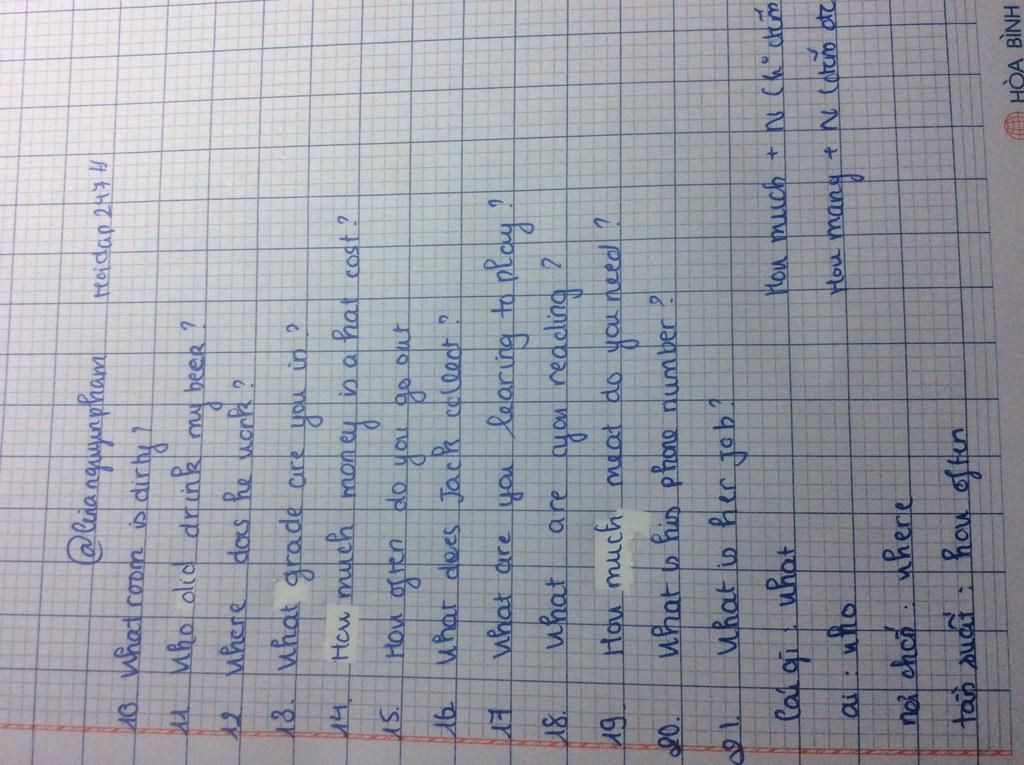 @leianguynpham Hoidap247H
10 What room is dirty?
11 Who did drink my beer?
12 Where does he work?
13. What grade are you in?
14. How much money is a hat cost?
15. How often do you go out
16. What does Jack collect?
17 What are you learing to play?
18. What are you reading?
19. How much meat do you need?
20. What is his phone number?
21. What is her job?
Cái gì: what
How much + N (k° đếm
ai: who
How many + N (đếm đc
nơi chốn: where
tần suất: how often
HÒA BÌNH